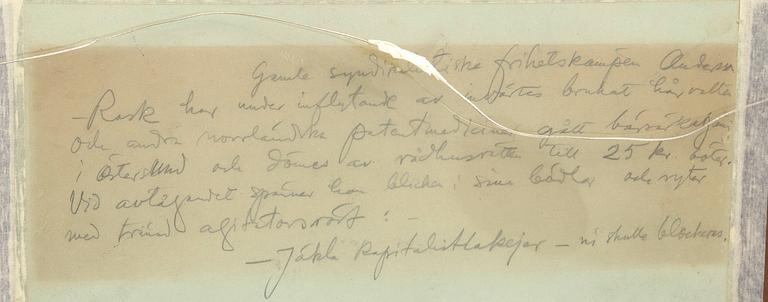 Gamla syndikalistiska frihetskämpen Andersson
– Rask har under inflytande av invärtes brukat hårvatten
och andra norrländska patentmediciner gått bärsärkagång
i Östersund och dömes av rådhusrätten till 25 kr. böter.
Vid avtågandet spänner han blicken i sina bödlar och ryter
med tränad agitatorsröst : –
– Jäkla kapitalistlakejer – ni skulle blockeras.